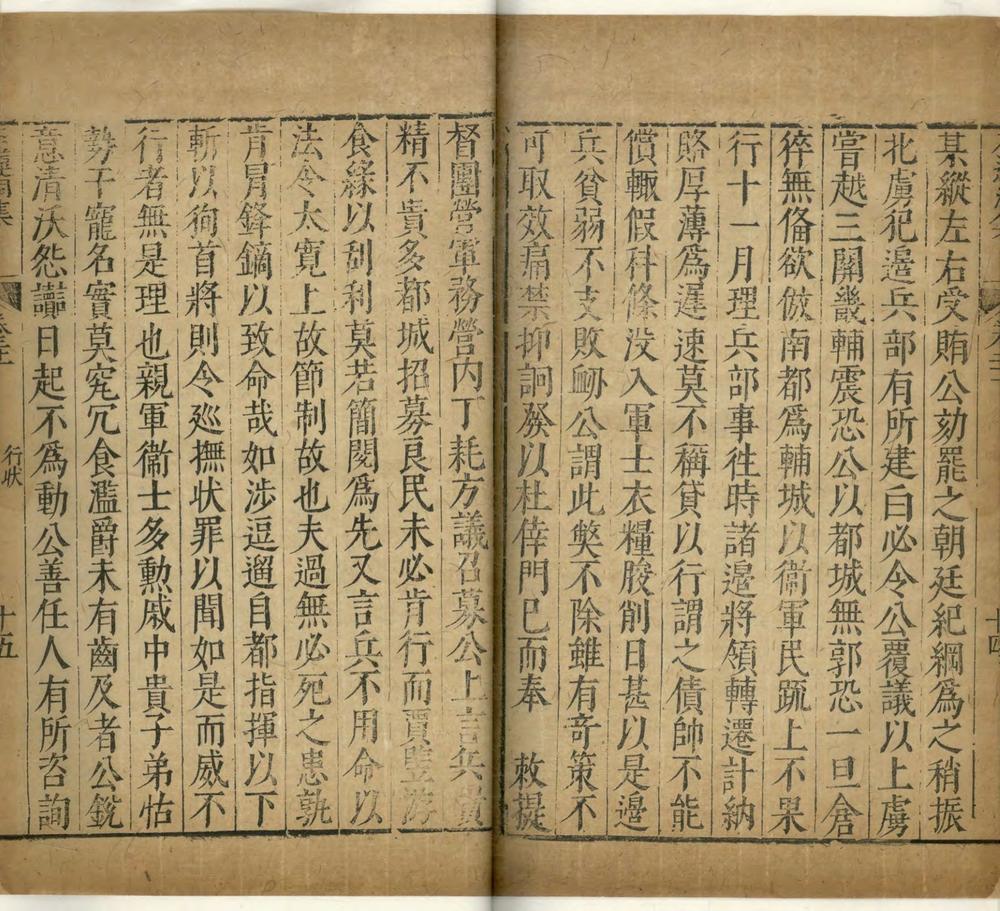 某縱左右受賄公劾罷之朝廷紀綱爲之稍振
北虜犯邊兵部有所建白必令公覆議以上虜
嘗越三關畿輔震恐公以都城無郭恐一旦倉
猝無偹欲倣南都爲輔城以衞軍民䟽上不果
行十一月理兵部事徃時諸邊將領轉遷計納
賂厚薄爲遲速莫不稱貸以行謂之債帥不能
償輙假科條没入軍士衣糧朘削日甚以是邊
兵貧弱不支敗衂公謂此獘不除雖有奇策不
可取效痛禁抑詗發以杜倖門已而奉　敕提
督團營軍務營内丁耗方議召募公上言兵貴
精不貴多都城招募良民未必肯行而賈豎游
食緣以刮利莫若簡閱爲先又言兵不用命以
法令太寛上故節制故也夫過無必死之患孰
肯冒鋒鏑以致命哉如涉逗遛自都指揮以下
斬以徇首將則令廵撫状罪以聞如是而威不
行者無是理也親軍衞士多勲戚中貴子弟怙
勢干寵名實莫究冗食濫爵未有齒及者公銳
意清汰怨讟日起不爲動公善任人有所咨詢
行状
十五